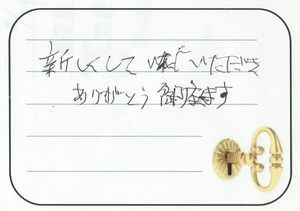 新しくして いただき
ありがとう 御座ます